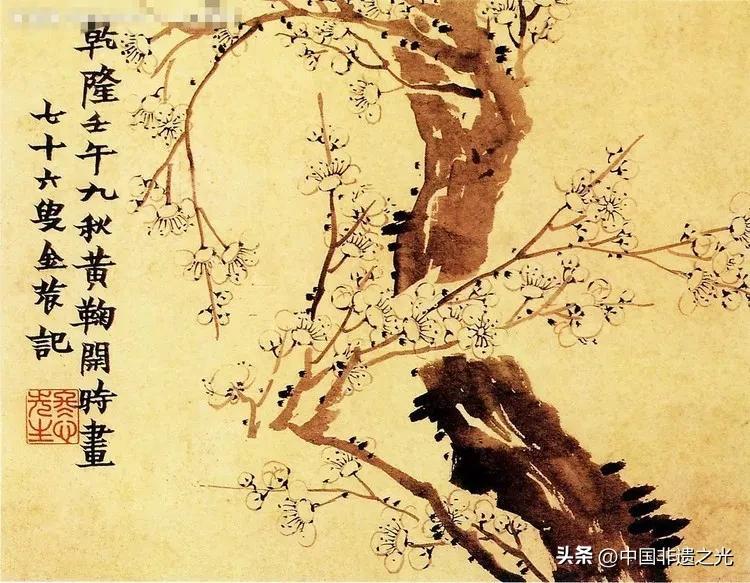 乾隆壬午九秋黄鞠開時畫
七十六叟金農記
冬心先生
头条 @中国非遗之光